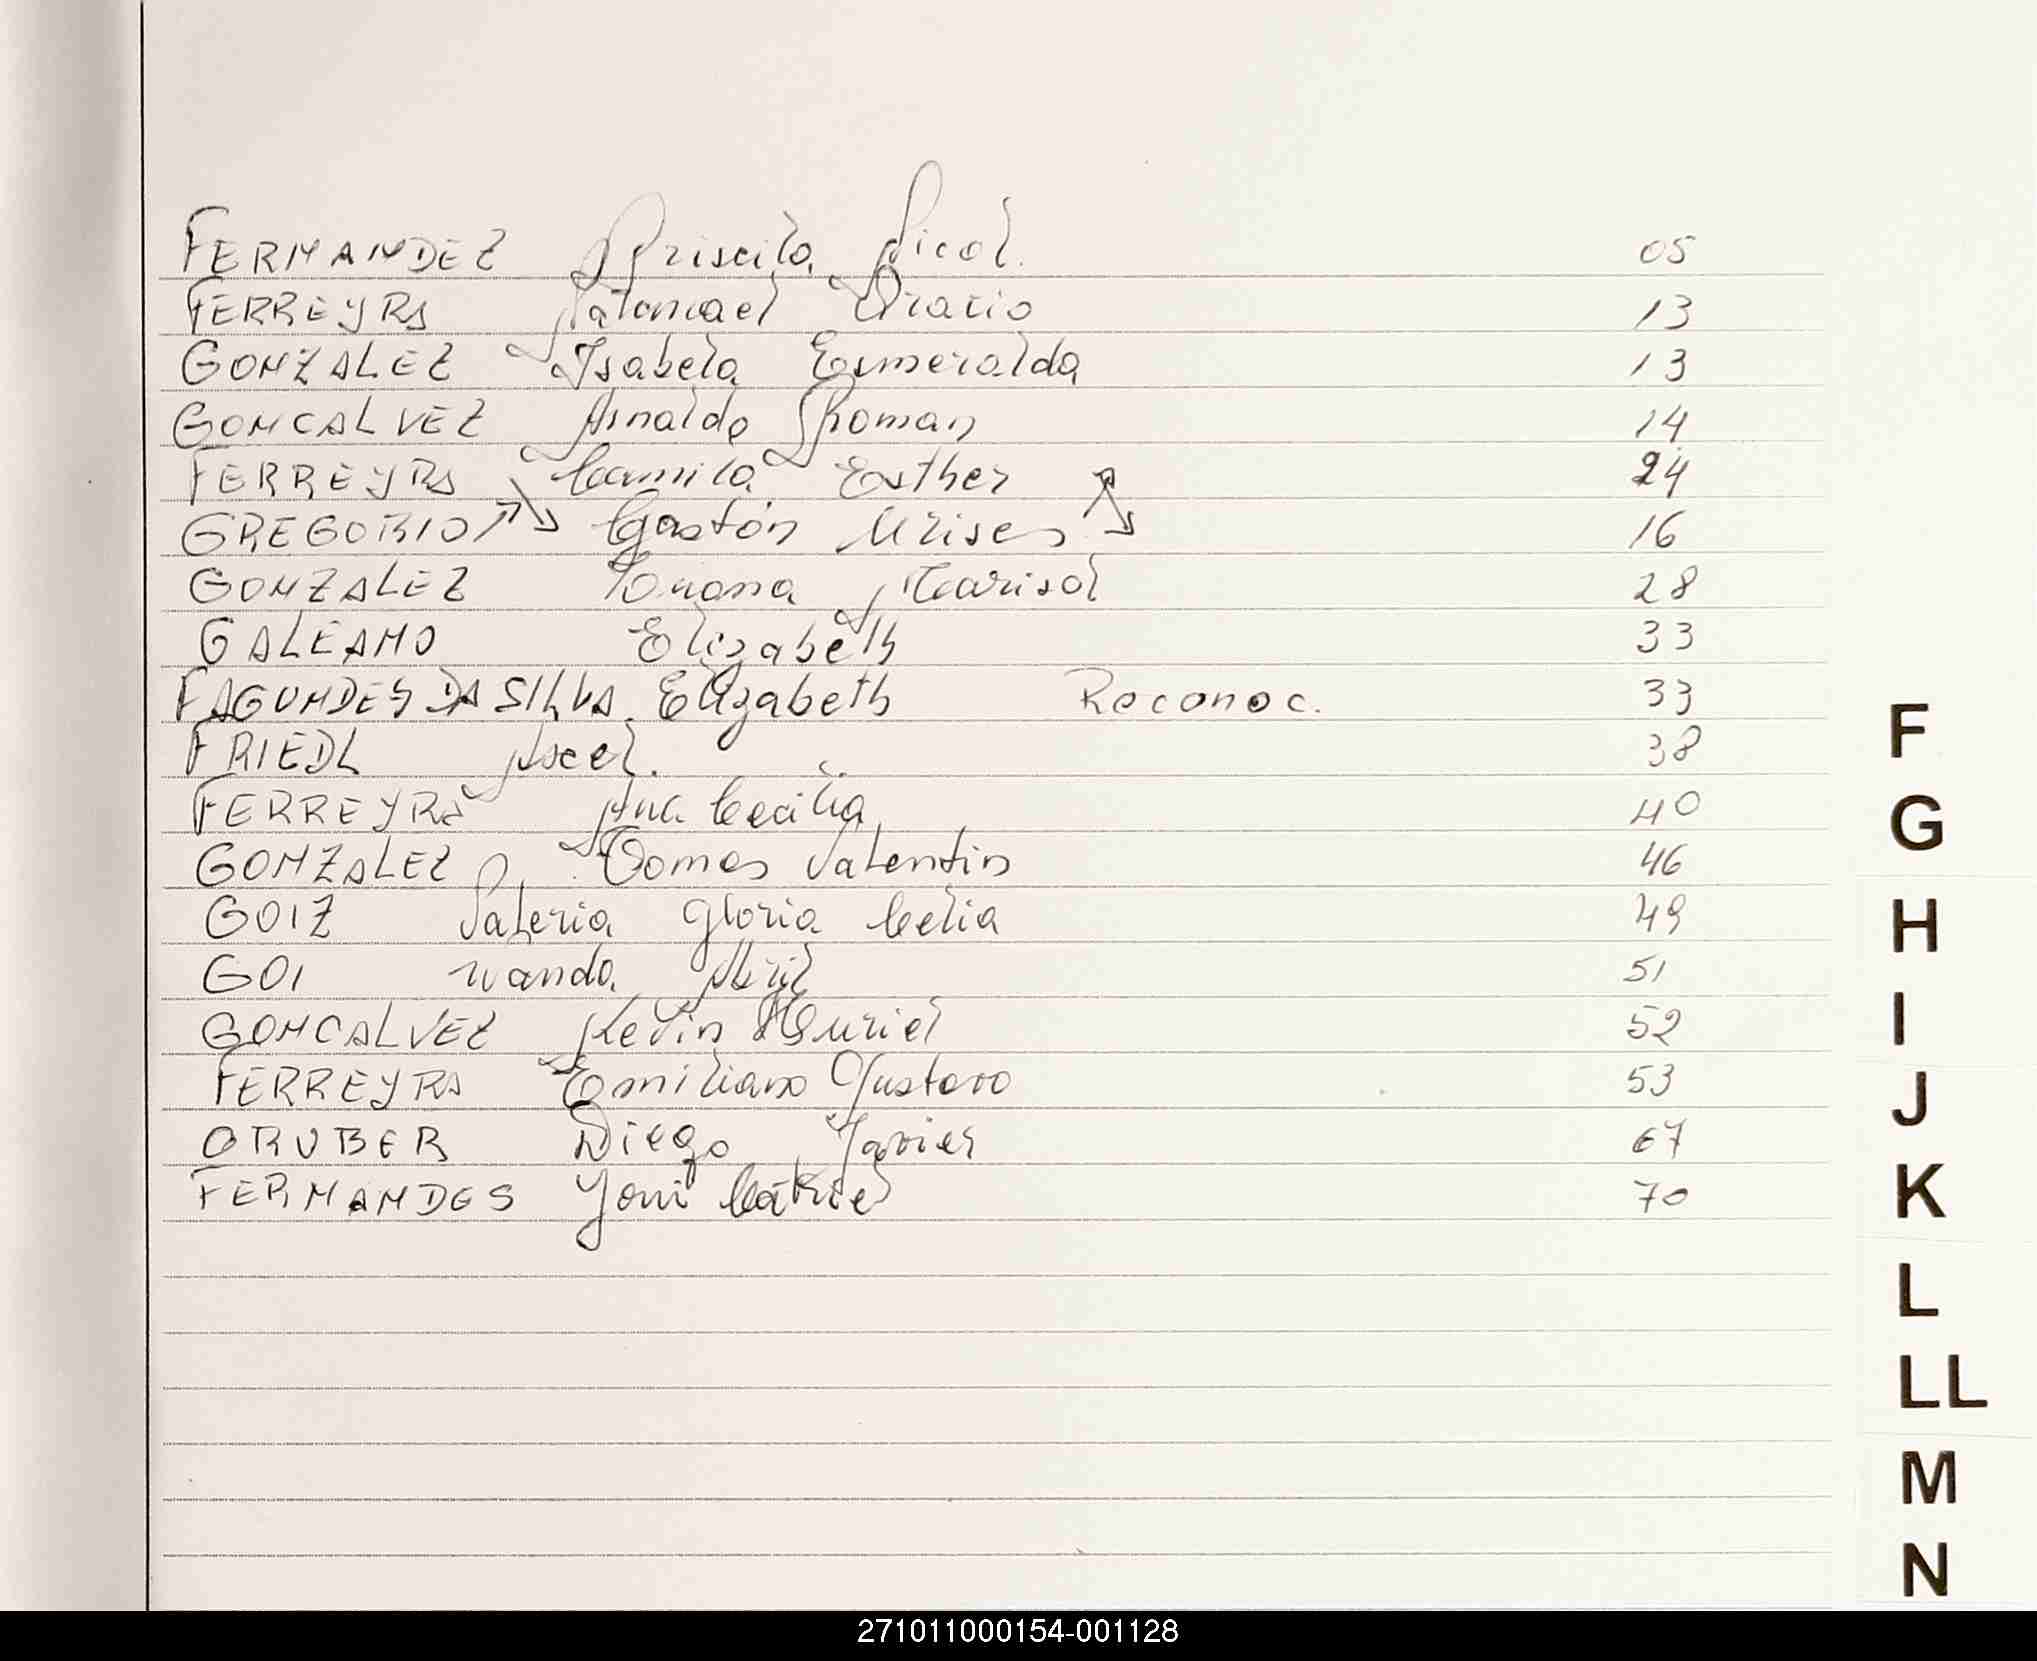 FERNANDEZ Priscila Nicol. 05
FERREYRA Natanael Oracio 13
GONZALEZ Isabela Esmeralda 13
GONCALVEZ Arnaldo Roman 14
FERREYRA Camila Esther 24
GREGORIO Gastón Ulises 16
GONZALEZ Marisol 28
GALEANO Elizabeth 33
FAGUNDES DA SILVA Elizabeth Reconoc. 33
FRIEDL Axel. 38
FERREYRA Ana Cecilia 40
GONZALEZ Tomas Valentin 46
GOIZ Valeria Gloria Celia 49
GOI Wanda Abril 51
GONCALVEZ Kevin Muriel 52
FERREYRA Emiliano Gustavo 53
GRUBER Diego Javier 67
FERNANDES Yoni Catriel 70
F
G
H
I
J
K
L
LL
M
N
271011000154-001128